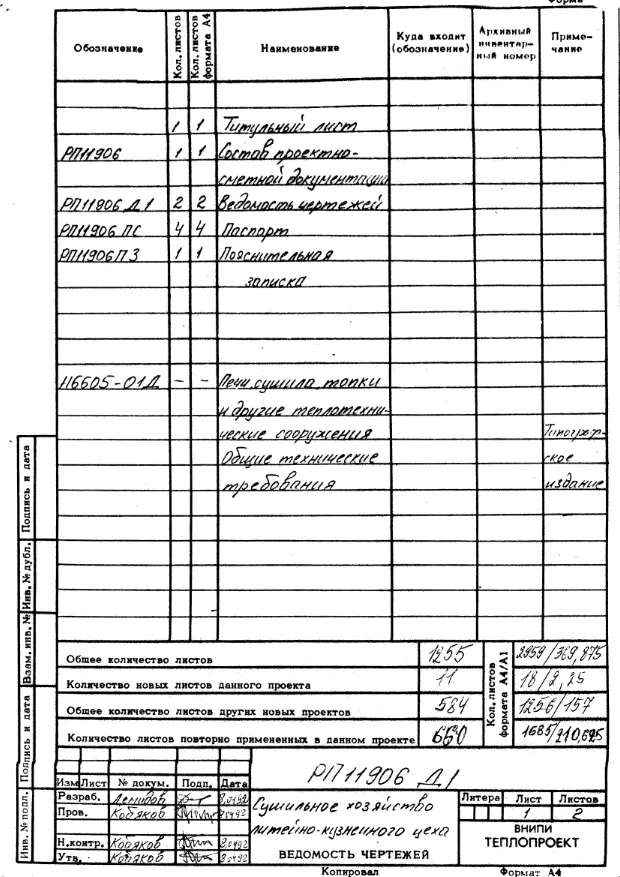 Форма
Обозначение | Кол. листов | Кол. листов формата А4 | Наименование | Куда входит (обозначение) | Архивный инвентарный номер | Примечание
1 1 Титульный лист
РП11906 1 1 Состав проектно-
сметной документации
РП11906 Д1 2 2 Ведомость чертежей
РП11906 ПС 4 4 Паспорт
РП11906 ПЗ 1 1 Пояснительная
записка
Н6605-01Д - - Печи, сушила, топки
и другие теплотехни-
ческие сооружения Типограф-
Общие технические ское
требования издание
Подпись и дата
Инв. № дубл.
Взам. инв. №
Подпись и дата
Инв. № подл.
Общее количество листов 1255
Количество новых листов данного проекта 11
Общее количество листов других новых проектов 584
Количество листов повторно примененных в данном проекте 660
Кол. листов формата А4/А1
2959/369,875
18/2,25
1256/157
1685/210,625
РП11906 Д1
Изм Лист № докум. Подп. Дата
Разраб. Демидов
Пров. Кобяков
Н.контр. Кобяков
Утв. Кобяков
Сушильное хозяйство
литейно-кузнечного цеха
ВЕДОМОСТЬ ЧЕРТЕЖЕЙ
Литера Лист Листов
1 2
ВНИПИ
ТЕПЛОПРОЕКТ
Копировал Формат А4